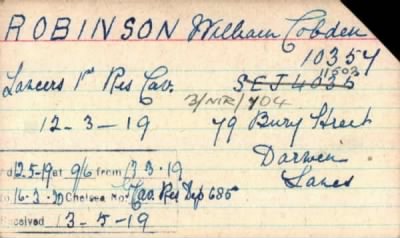 ROBINSON William Cobden
10354
11503
Lancers 1st Res Cav. SEJ 4036
3/NIR/704
12-3-19 79 Bury Street
Darwen
Lancs
d 12-5-19 at 9/6 from 13.3.19
to 16-3-20 Chelsea No. Cav Res Dep 685
eceived 13-5-19